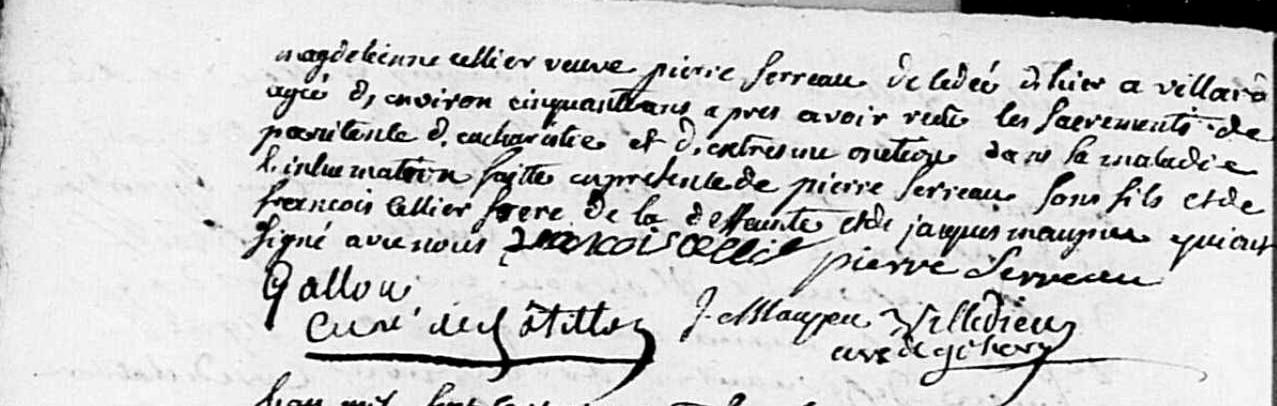 magdeleinne cellier veuve pierre Serreau decedeé d'hier a villard
agée d'environ cinquante ans apres avoir recu les sacrements de
penitence d'eucharistie et d'extresme onction dans sa maladie
l'inhumation faitte en presence de pierre Serreau son fils et de
francois Cellier frere de la deffunte et de jacques maupeu qui ont
signé avec nous francois cellie pierre Serreau
Gallou
curé de Chatillon J Maupeu Villedieu
curé de
L'an mil sept